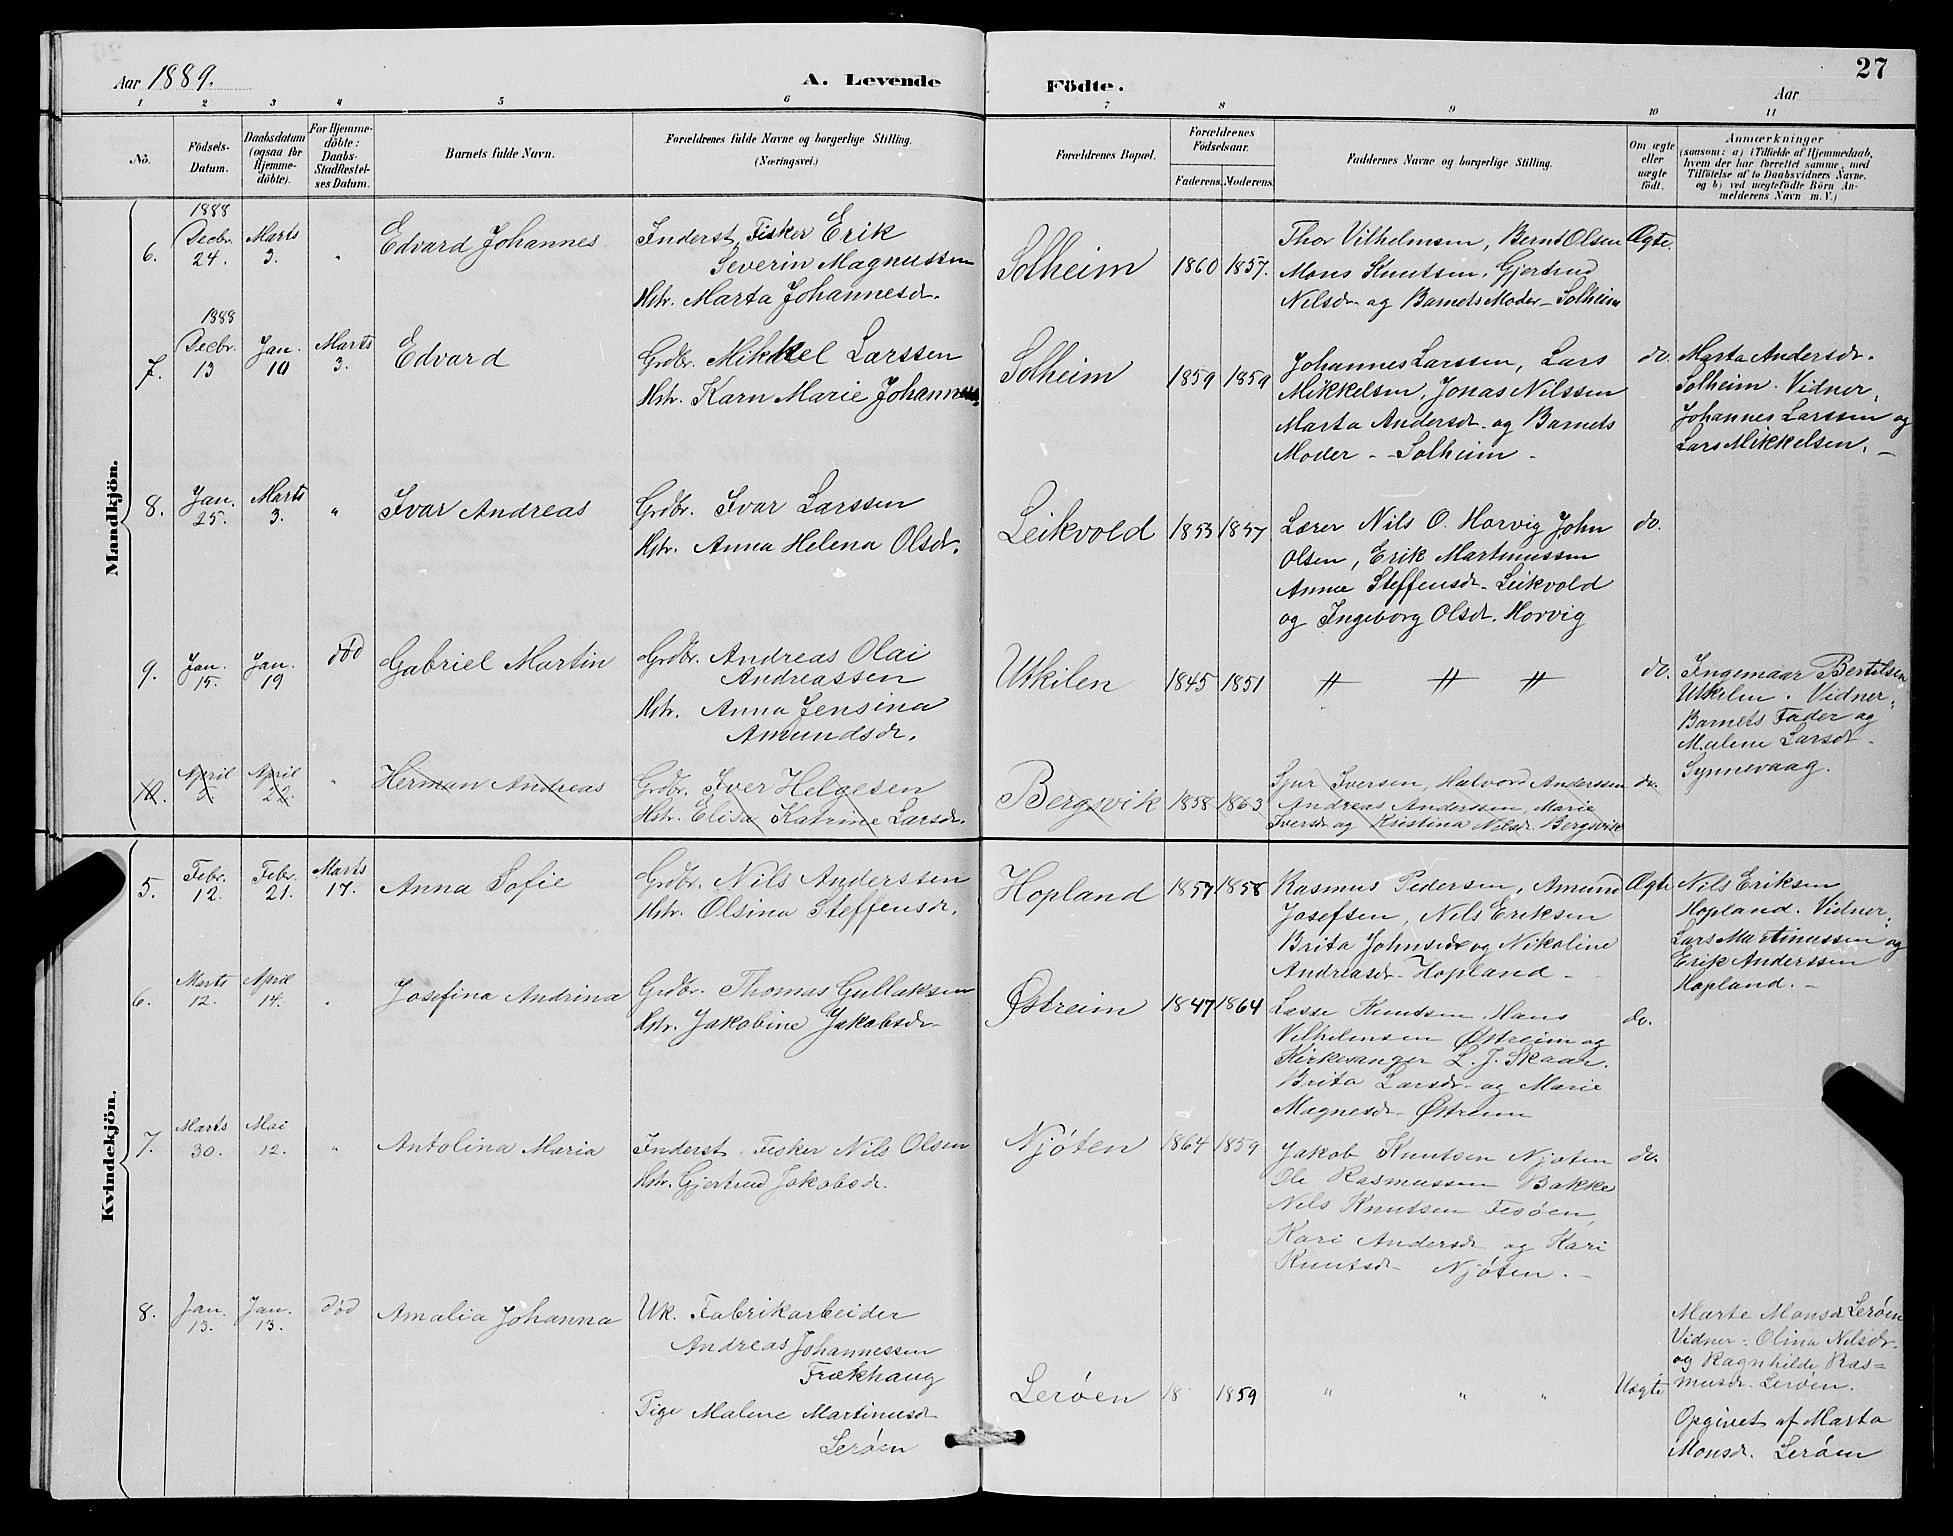 Aar 1889.
A. Levende
Födte.
27
Aar
1 2 3 4 5 6 7 8 9 10 11
No.
Födsels-
Datum.
Daabsdatum
(ogsaa for
Hjemme-
döbte).
For Hjemme-
döbte:
Daabs-
Stadfæstel-
ses Datum.
Barnets fulde Navn.
Forældrenes fulde Navne og borgerlige Stilling.
(Næringsvei.)
Forældrenes Bopæl.
Forældrenes
Födselsaar.
Faderens. Moderens.
Faddernes Navne og borgerlige Stilling.
Om ægte
eller
uægte
født.
Anmærkninger
(saasom: a) i Tilfælde af Hjemmedaab,
hvem der har forrettet samme, med
Tilföielse af to Daabsvidners Navne.
og b) ved uægtefödte Börn An-
melderens Navn m. V.)
Mandkjön.
6.
1888
Decbr.
24.
Marts
3.
"
Edvard Johannes
Inderst, Fisker Erik
Severin Magnussen
Hstr. Marta Johannesdr.
Solheim
1860 1857.
Thor Vilhelmsen, Bernt Olsen
Mons Knutsen, Gjertrud
Nilsdr. og Barnets Moder - Solheim
Ægte.
7.
1888
Decbr.
13
Jan.
10
Marts
3.
Edvard
Grdbr. Mikkel Larssen
Hstr. Karn Marie Johannesdr.
Solheim
1859 1859
Johannes Larssen, Lars
Mikkelsen, Jonas Nilssen
Marta Andersdr. og Barnets
Moder - - Solheim -
do.
Marta Andersdr.
Solheim. Vidner:
Johannes Larssen og
Lars Mikkelsen. -
8.
Jan.
25.
Marts
3.
"
Ivar Andreas
Grdbr. Ivar Larssen
Hstr. Anna Helena Olsdr.
Leikvold
1853 1857
Lærer Nils O. Horvig John
Olsen, Erik Martinussen
Anna Steffensdr. Leikvold
og Ingeborg Olsdr. Horvig
do.
9.
Jan.
15.
Jan.
19
död
Gabriel Martin
Grdbr. Andreas Olai
Andreassen
Hstr. Anna Jensina
Amundsdr.
Utkilen
1845 1851
" " "
do.
Ingemaar Bertilsen
Utkilen. Vidner:
Barnets Fader og
Malene Larsdr.
Synnevaag.
10.
April
5
April
22.
"
Herman Andreas
Grdbr. Iver Helgesen
Hstr. Elisa Katrine Larsdr.
Bergsvik
1858 1863
Sjur Iversen, Halvord Anderssen
Andreas Anderssen, Marie
Iversdr. og Kristina Nilsdr. Bergsvik
do.
Kvindekjön.
5.
Febr.
12.
Febr.
21.
Marts
17.
Anna Sofie
Grdbr. Nils Anderssen
Hstr. Olsina Steffensdr.
Hopland
1857 1858
Rasmus Pedersen, Amund
Josefsen, Nils Eriksen
Brita Johnsdr. og Nikoline
Andreasdr. Hopland -
Ægte
Nils Eriksen
Hopland. Vidner:
Lars Martinussen og
Erik Anderssen
Hopland. -
6.
Marts
12.
April
14.
"
Josefina Andrina
Grdbr. Thomas Gullaksen
Hstr. Jakobine Jakobsdr.
Østreim
1847 1864
Lasse Knutsen, Hans
Vilhelmsen Østreim og
Kirkesanger L. J. Skaar.
Brita Larsdr. og Marie
Magnesdr. Østreim
do.
7.
Marts
30.
Mai
12.
"
Antolina Maria
Inderst Fisker Nils Olsen
Hstr. Gjertrud Jakobsdr.
Njöten
1864 1859
Jakob Knutsen Njöten
Ole Rasmussen Bakke
Nils Knutsen Fesöen,
Kari Andersdr. og Kari
Knutsdr. Njöten. -
do.
8.
Jan.
13.
Jan.
13.
död
Amalia Johanna
Uk. Fabrikarbeider
Andreas Johannessen
Frækhaug
Pige Malene Martinusdr.
Leröen
Leröen
18 1859
" " "
Uægte
Marte Monsdr. Leröen
Vidner: Olina Nilsdr.
og Ragnhilde Ras=
musdr. Leröen.
Opgivet af Marta
Monsdr. Leröen